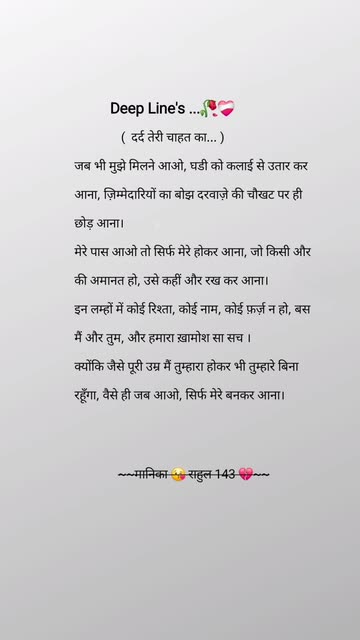 Deep Line's ...🥀❤️‍🩹
( दर्द तेरी चाहत का... )
जब भी मुझे मिलने आओ, घडी को कलाई से उतार कर
आना, ज़िम्मेदारियों का बोझ दरवाज़े की चौखट पर ही
छोड़ आना।
मेरे पास आओ तो सिर्फ मेरे होकर आना, जो किसी और
की अमानत हो, उसे कहीं और रख कर आना।
इन लम्हों में कोई रिश्ता, कोई नाम, कोई फ़र्ज़ न हो, बस
मैं और तुम, और हमारा ख़ामोश सा सच ।
क्योंकि जैसे पूरी उम्र मैं तुम्हारा होकर भी तुम्हारे बिना
रहूँगा, वैसे ही जब आओ, सिर्फ मेरे बनकर आना।
~~मानिका 😘 राहुल 143 💔~~